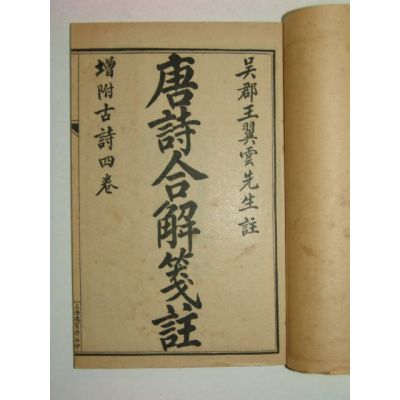 吳郡王翼雲先生註
唐詩合解箋註
增附古詩四卷